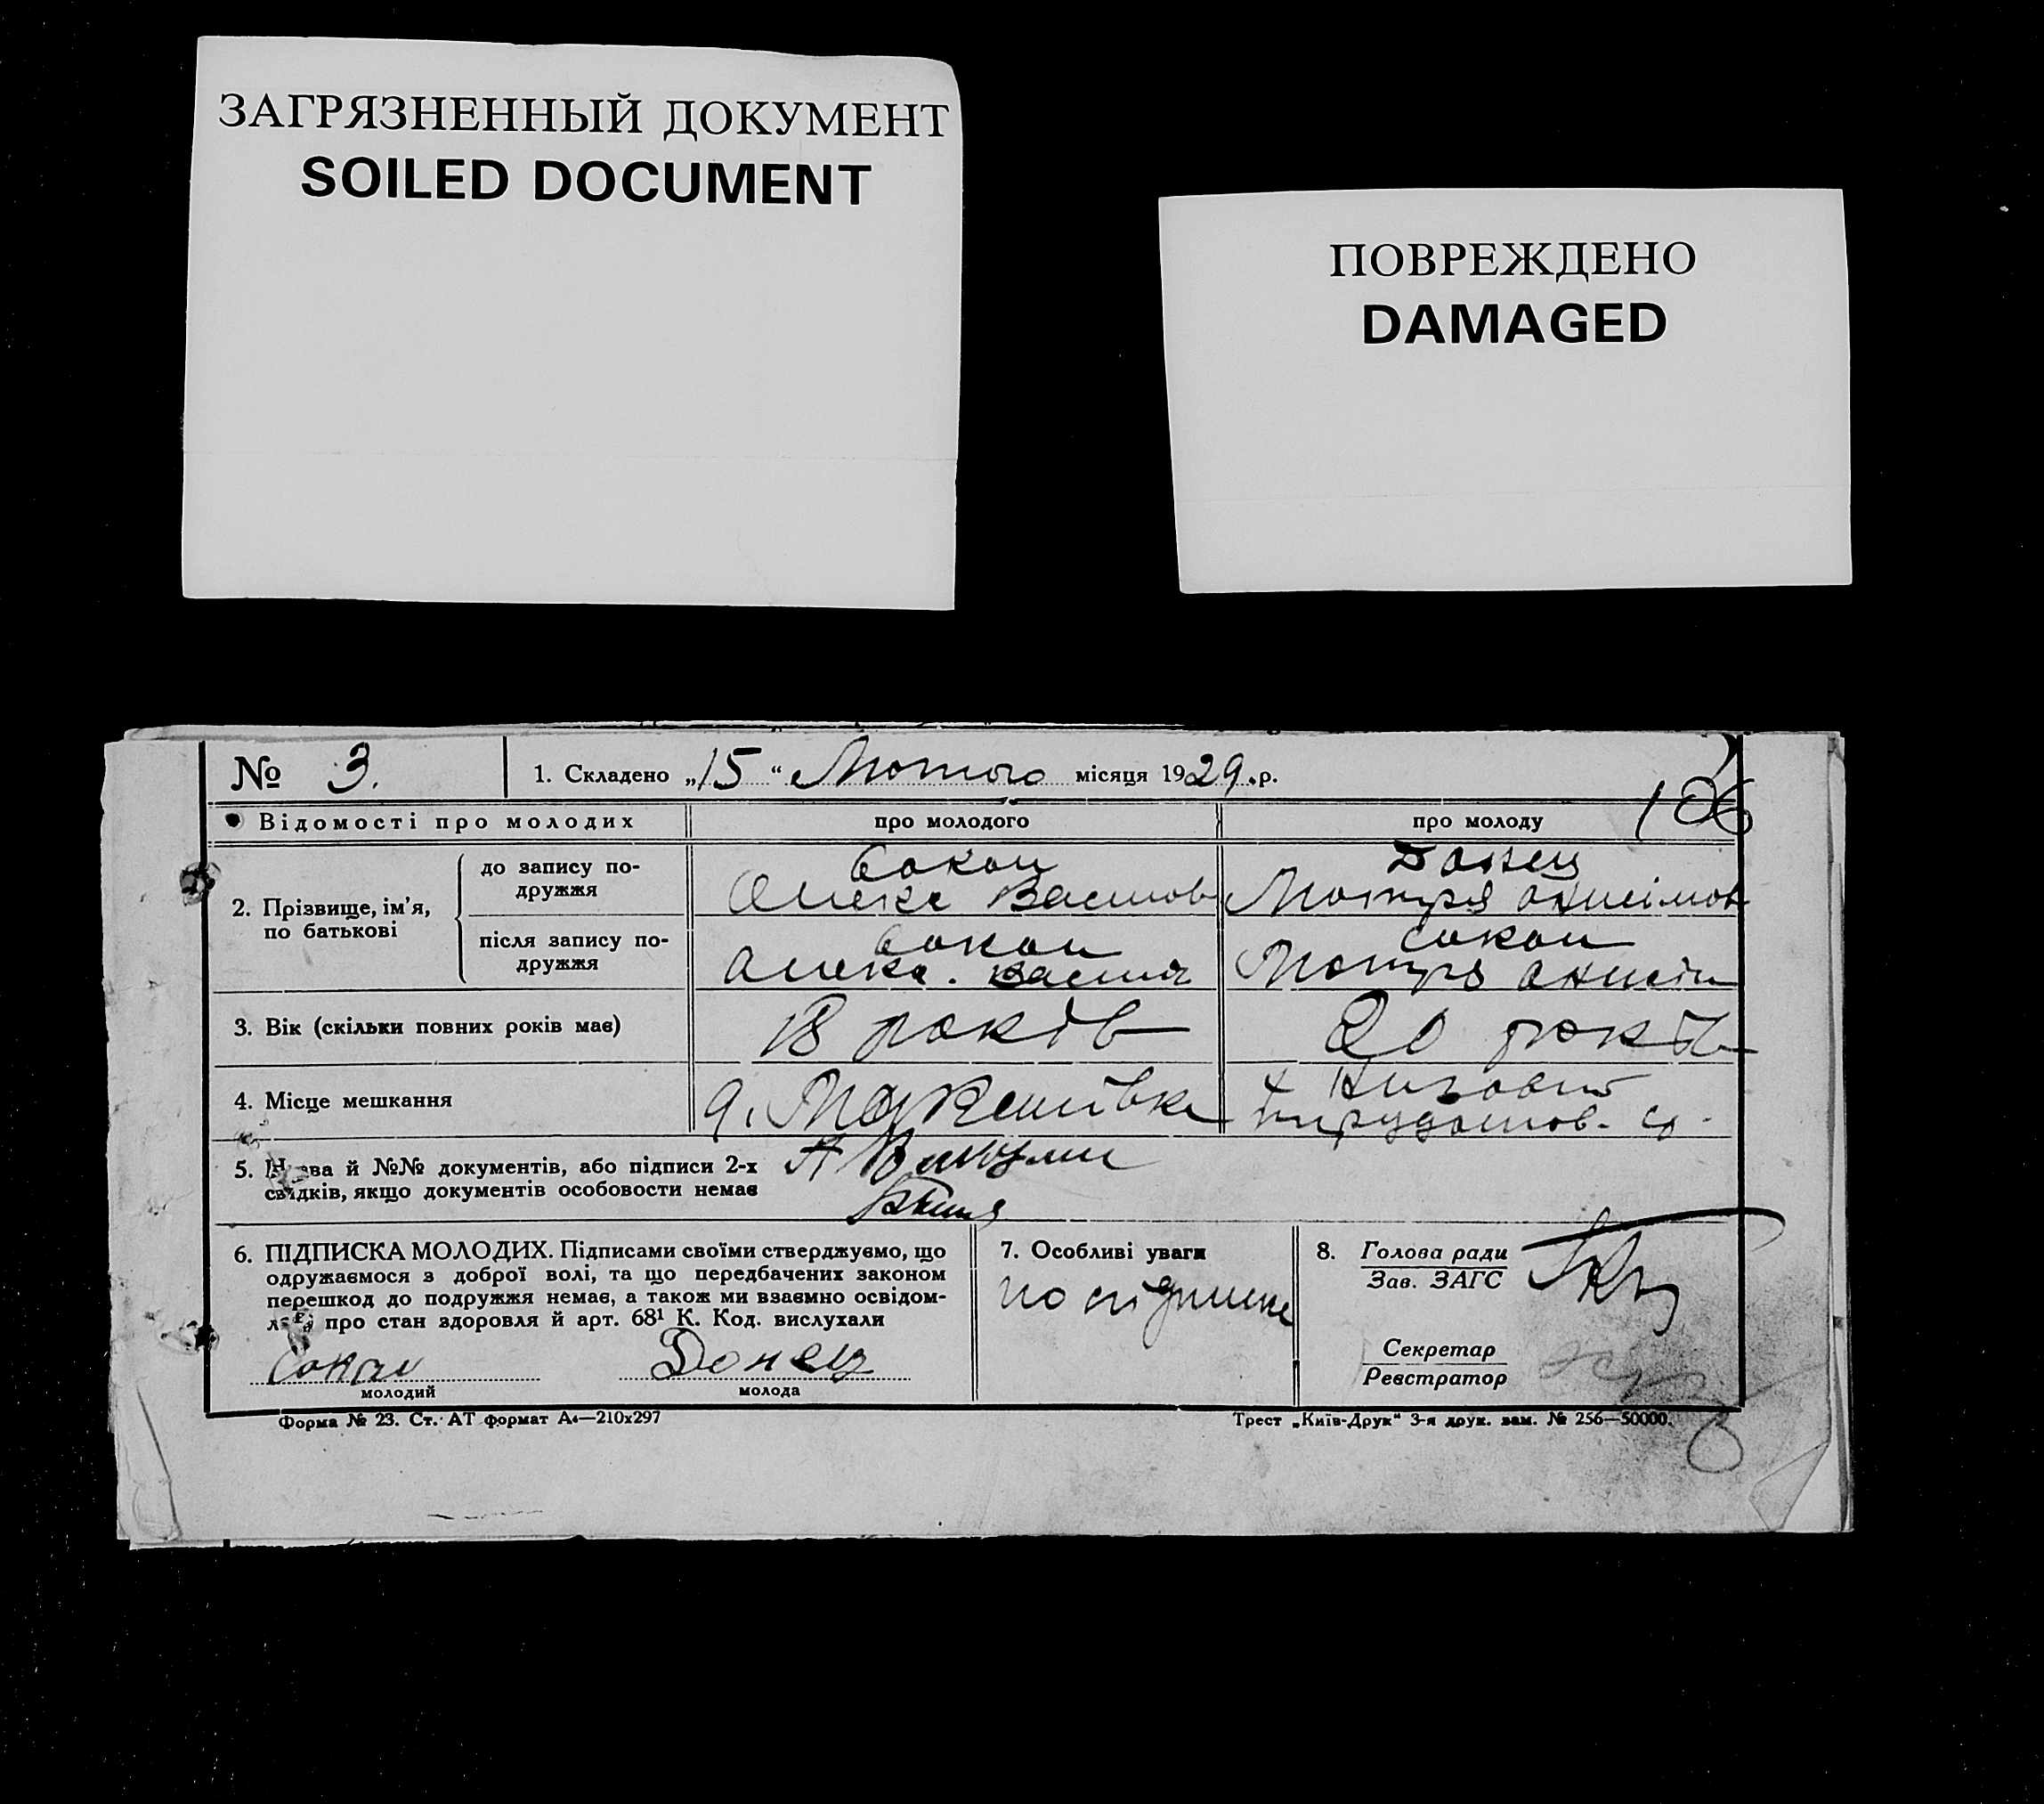 ЗАГРЯЗНЕННЫЙ ДОКУМЕНТ
SOILED DOCUMENT
ПОВРЕЖДЕНО
DAMAGED
№ 3. 1. Складено „15“ Лютого місяця 1929.р.
106
Відомості про молодих про молодого про молоду
2. Прізвище, ім’я, по батькові
до запису подружжя
Сокол
Олекс Васильов
Донец
Мотря Онисімов
після запису подружжя
Сокол
Олекс. Васил
Сокол
Мотря Онисім
3. Вік (скільки повних років має) 18 років 20 років
4. Місце мешкання
5. Назва й №№ документів, або підписи 2-х
свідків, якщо документів особовости немає
6. ПІДПИСКА МОЛОДИХ. Підписами своїми стверджуємо, що
одружаємося з доброї волі, та що передбачених законом
перешкод до подружжя немає, а також ми взаємно освідом-
про стан здоровля й арт. 68¹ К. Код. вислухали
Сокол Донец
молодий молода
7. Особливі уваги
по підписке
8. Голова ради
Зав. ЗАГС
Секретар
Реєстратор
Форма № 23. Ст. АТ формат А₄—210х297
Трест „Київ-Друк“ 3-я друк. зам. № 256—50000.